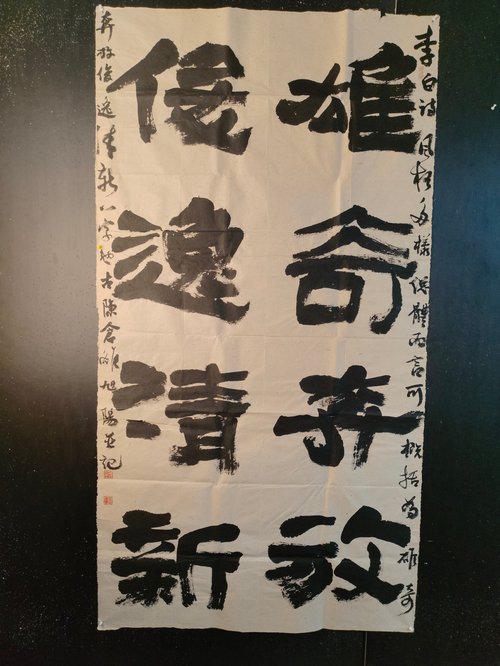 李白诗風格多樣總體而言可概括為雄奇
雄奇奔放
俊逸清新
奔放俊逸清新八字古陳倉旭陽並記